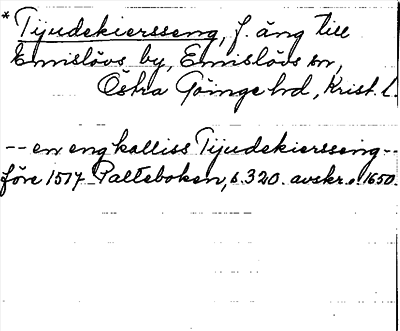 *Tijudekiersseng, f. äng till
Emislövs by, Emislövs sn,
Östra Göinge hd, Krist. l.
-- en eng kalliss Tijudekiersseng --
före 1517 Palteboken, s. 320. avskr. o. 1650.